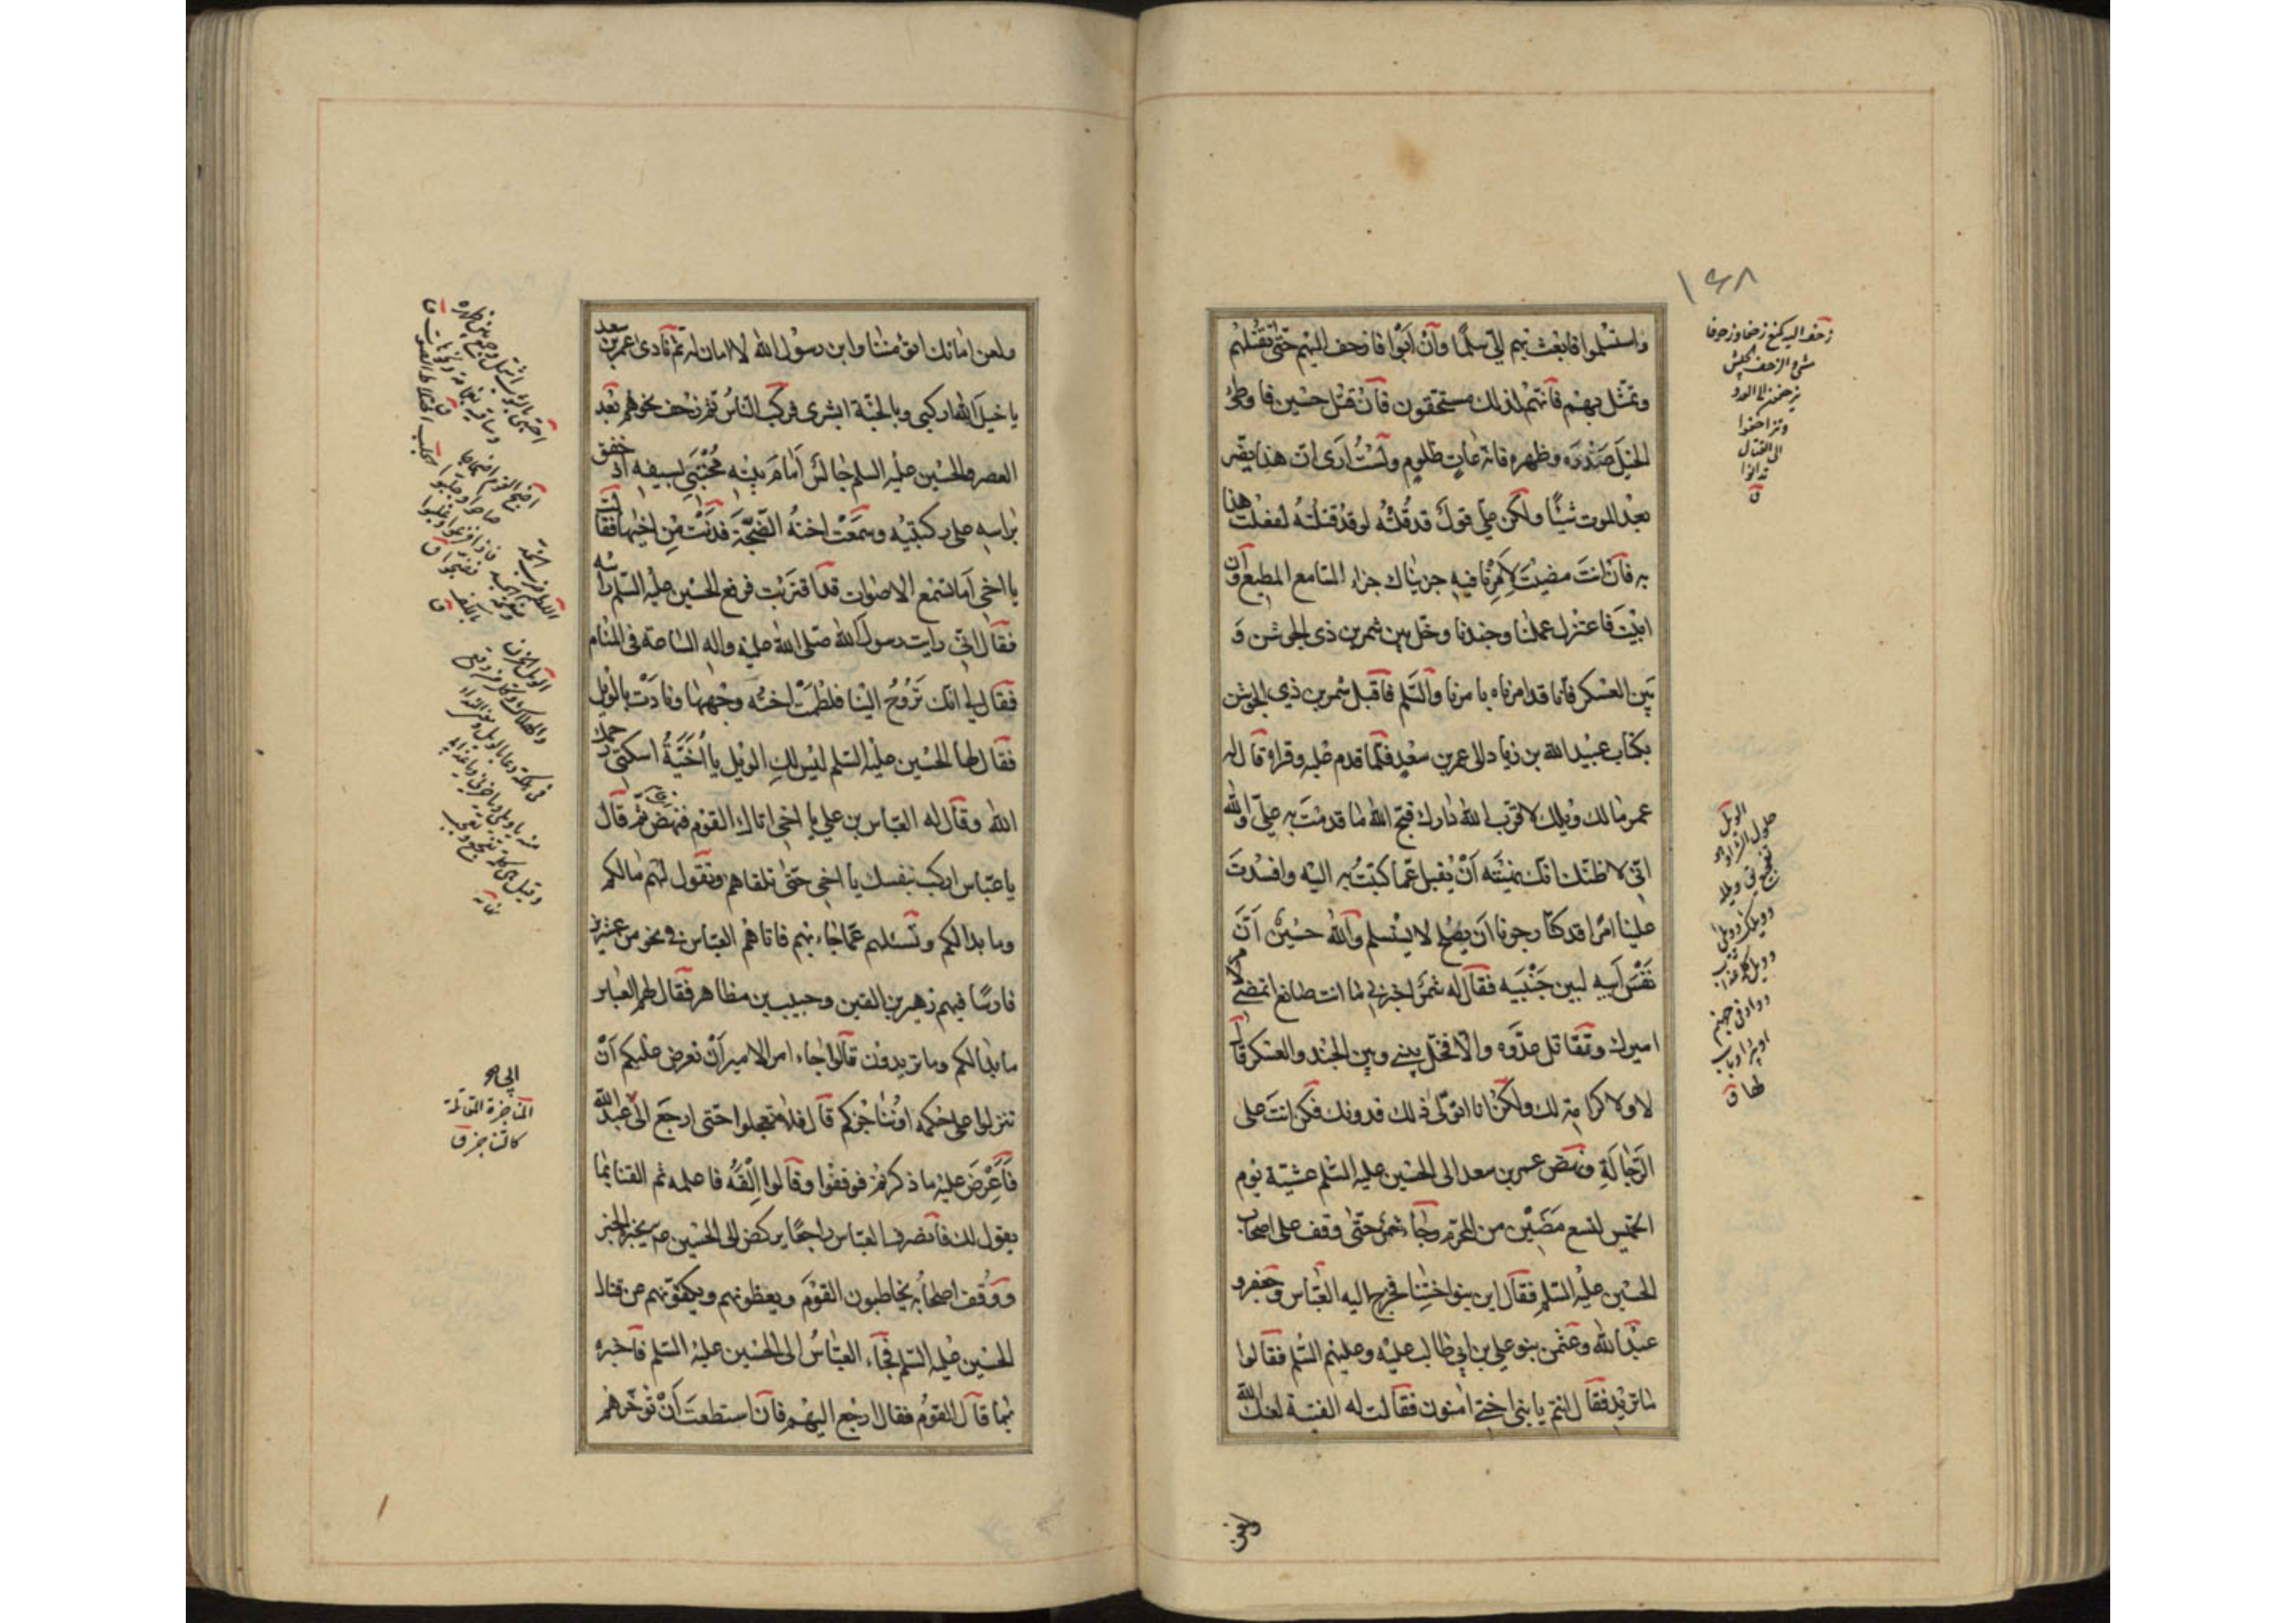 ١٤٨
واستسلموا فابعث بهم الىّ سلمًا وان ابوا فازحف اليهم حتى تقتلهم
وتمثل بهم فانهم لذلك مستحقون فان قتل حسين فاوطئ
الخيل صدره وظهره فانه عات ظلوم ولست ارى ان هذا يضر
بعد الموت شيئًا ولكن علي قول قد قلته لو قد قتلته لفعلت هذا
به فان انت مضيت لامرنا فيه جزيناك جزاء السامع المطيع وان
ابيت فاعتزل عملنا وجندنا وخل بين شمر بن ذي الجوشن و
بين العسكر فانا قد امرناه بامرنا والسلم فاقبل شمر بن ذي الجوشن
بكتاب عبيد الله بن زياد الى عمر بن سعد فلما قدم عليه وقراه قال له
عمر مالك ويلك لا قرب الله دارك قبح الله ما قدمت به عليّ والله
اني لاظنك انك نهيته ان يقبل عما كتبت به اليه وافسدت
علينا امرًا قد كنا رجونا ان يصلح لا يستسلم والله حسين ان
نفس ابيه لبين جنبيه فقال له شمر اخبرني ما انت صانع اتمضي لامر
اميرك وتقاتل عدوه والا فخل بيني وبين الجند والعسكر قال
لا ولا كرامة لك ولكن انا اتولى ذلك فدونك فكن انت على
الرجالة ونهض عمر بن سعد الى الحسين عليه السلم عشية يوم
الخميس لتسع مضين من المحرم وجاء شمر حتى وقف على اصحاب
الحسين عليه السلم فقال اين بنو اختنا فخرج اليه العباس وجعفر و
عبد الله وعثمن بنو علي بن ابي طالب عليه وعليهم السلم فقالوا
ما تريد فقال انتم يا بني اختي امنون فقالت له الفتية لعنك الله
ولعن
زحف اليه كمنع زحفا وزحوفا
مشى والزحف الجيش
يزحفون الى العدو
وتزاحفوا
الى القتال
تدانوا
ق
الويل
حلول الشر
ولعن امانك اتؤمننا وابن رسول الله لا امان له ثم نادى عمر بن سعد
يا خيل الله اركبي وبالجنة ابشري فركب الناس ثم زحف نحوهم بعد
العصر والحسين عليه السلم جالس امام بيته محتبي بسيفه اذ خفق
براسه على ركبتيه وسمعت اخته الضجة فدنت من اخيها فقالت
يا اخي اما تسمع الاصوات قد اقتربت فرفع الحسين عليه السلم راسه
فقال اني رايت رسول الله صلى الله عليه واله الساعة في المنام
فقال لي انك تروح الينا فلطمت اخته وجهها ونادت بالويل
فقال لها الحسين عليه السلم ليس لك الويل يا اخية اسكتي رحمك
الله وقال له العباس بن علي يا اخي اتاك القوم فنهض ثم قال
يا عباس اركب بنفسك يا اخي حتى تلقاهم وتقول لهم ما لكم
وما بدا لكم وتسئلهم عما جاء بهم فاتاهم العباس في نحو من عشرين
فارسًا فيهم زهير بن القين وحبيب بن مظاهر فقال لهم العباس
ما بدا لكم وما تريدون قالوا جاء امر الامير ان نعرض عليكم ان
تنزلوا على حكمه او نناجزكم قال فلا تعجلوا حتى ارجع الى ابي عبد الله
فاعرض عليه ما ذكرتم فوقفوا وقالوا القه فاعلمه ثم القنا بما
يقول لك فانصرف العباس راجعًا يركض الى الحسين ع يخبره الخبر
ووقف اصحابه يخاطبون القوم ويعظونهم ويكفونهم عن قتال
الحسين عليه السلم فجاء العباس الى الحسين عليه السلم فاخبره
بما قال القوم فقال ارجع اليهم فان استطعت ان تؤخرهم
المناجزة المقاتلة
كالتناجز ق